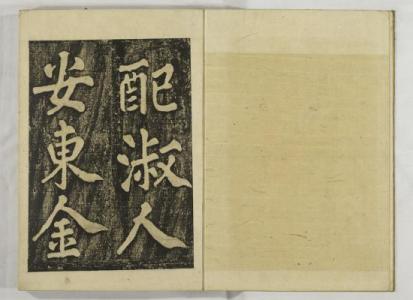 配淑人
安東金